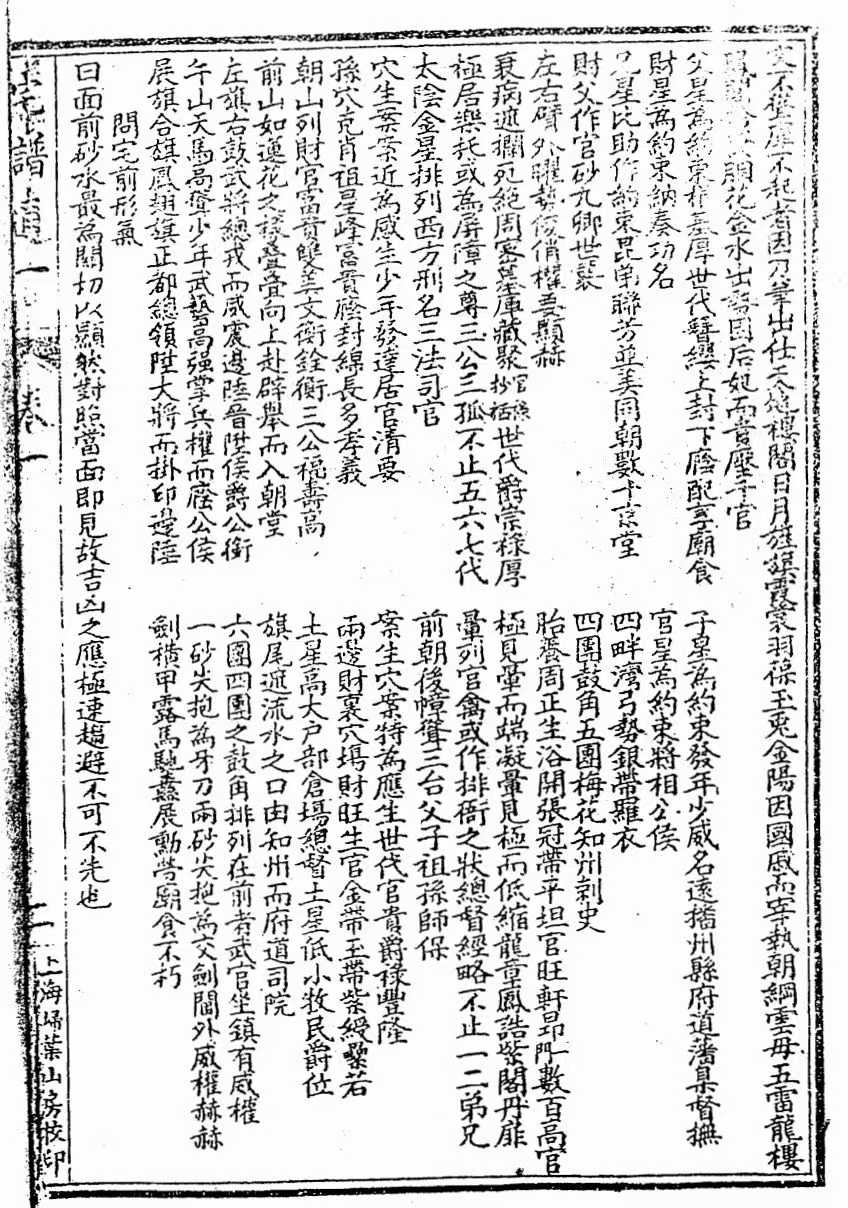 不起者因刀筆出仕天馬樓閣日月旌旗霞裳羽葆玉兎金陽因國戚而宰執朝綱雲母五雷龍樓
胭花金水出勢因后妃而貴壓千官
父星為約束根基厚世代簪纓上封下廕配享廟食
子星為約束發年少威名遠播州縣府道藩臬督撫
財星為約束納奏功名
官星為約束將相公侯
兄星比助作約束昆弟聯芳並美同朝數十京堂
四畔灣弓勢銀帶羅衣
財父作官砂九卿世襲
四團鼓角五團梅花知州刺史
左右臂外曜勢俊俏權要顯赫
胎養周正生浴開張冠帶平坦官旺軒昂數百高官
衰病遮攔死絕周密墓庫藏聚世代爵崇祿厚
極見暈而端凝暈見極而低縮龍章鳳誥紫閣丹扉
極居樂托或為屏障之尊三公三孤不止五六七代
暈列官禽或作排衙之狀總督經略不止一二弟兄
太陰金星排列西方刑名三法司官
前朝後幛聳三台父子祖孫師保
穴生案案近為感生少年發達居官清要
案生穴案特為應生世代官貴爵祿豐隆
孫穴克肖祖星峰富貴廕封綿長多孝義
兩邊財裏穴塲財旺生官金帶玉帶紫綬纍若
朝山列財官富貴雙美文衡銓衡三公稅壽高
土星高大戶部倉塲總督土星低小牧民爵位
前山如蓮花之瓣疊疊向上赴辟舉而入朝堂
旗尾遮流水之口由知州而府道司院
左旗右鼓武將總戎而威震邊陲晉陞侯爵公銜
六團四團之鼓角排列在前者武官坐鎮有威權
午山天馬高聳少年武藝高强掌兵權而廕公侯
一砂尖抱為牙刀兩砂尖抱為交劍閫外威權赫赫
展旗合旗鳳翅旗正都總領陞大將而掛印邊陲
劍橫甲露馬馳纛展勳勞廟食不朽
問宅前形氣
曰面前砂水最為關切以顯然對照當面即見故吉凶之應極速趨避不可不先也
譜 卷一
二
上海埽葉山房校印